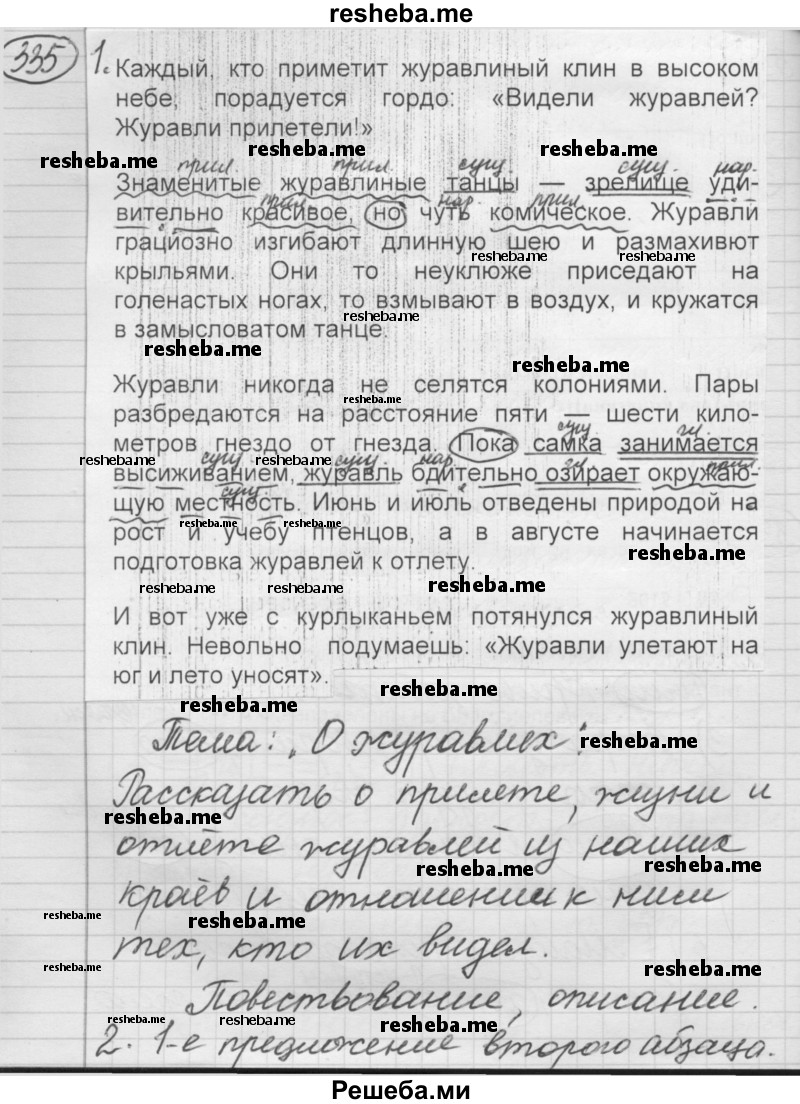 resheba.me
335
1. Каждый, кто приметит журавлиный клин в высоком
небе, порадуется гордо: «Видели журавлей?
Журавли прилетели!»
resheba.me resheba.me resheba.me
прил. прил. сущ. сущ. нар.
Знаменитые журавлиные танцы — зрелище уди-
прил. нар. прил.
вительно красивое, но чуть комическое. Журавли
грациозно изгибают длинную шею и размахивют
resheba.me resheba.me
крыльями. Они то неуклюже приседают на
голенастых ногах, то взмывают в воздух, и кружатся
resheba.me
в замысловатом танце.
resheba.me resheba.me
Журавли никогда не селятся колониями. Пары
resheba.me
разбредаются на расстояние пяти — шести кило-
сущ. гл.
метров гнездо от гнезда. Пока самка занимается
resheba.me resheba.me resheba.me
сущ. сущ. нар. гл. прил.
высиживанием, журавль бдительно озирает окружаю-
сущ.
щую местность. Июнь и июль отведены природой на
resheba.me resheba.me
рост и учебу птенцов, а в августе начинается
resheba.me
подготовка журавлей к отлету.
resheba.me resheba.me resheba.me
И вот уже с курлыканьем потянулся журавлиный
клин. Невольно подумаешь: «Журавли улетают на
юг и лето уносят».
resheba.me
resheba.me
Тема: „О журавлях".
resheba.me
Рассказать о прилете, жизни и
resheba.me
отлёте журавлей из наших
resheba.me resheba.me
краёв и отношении к ним
resheba.me resheba.me
тех, кто их видел.
resheba.me resheba.me
Повествование, описание.
resheba.me resheba.me resheba.me
2. 1-е предложение второго абзаца.
Решеба.ми